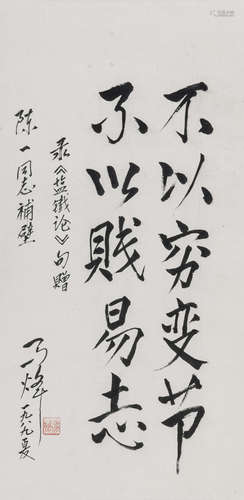 不以穷变节
不以贱易志
录《盐铁论》句赠
陈一同志补壁
马烽 一九八九夏